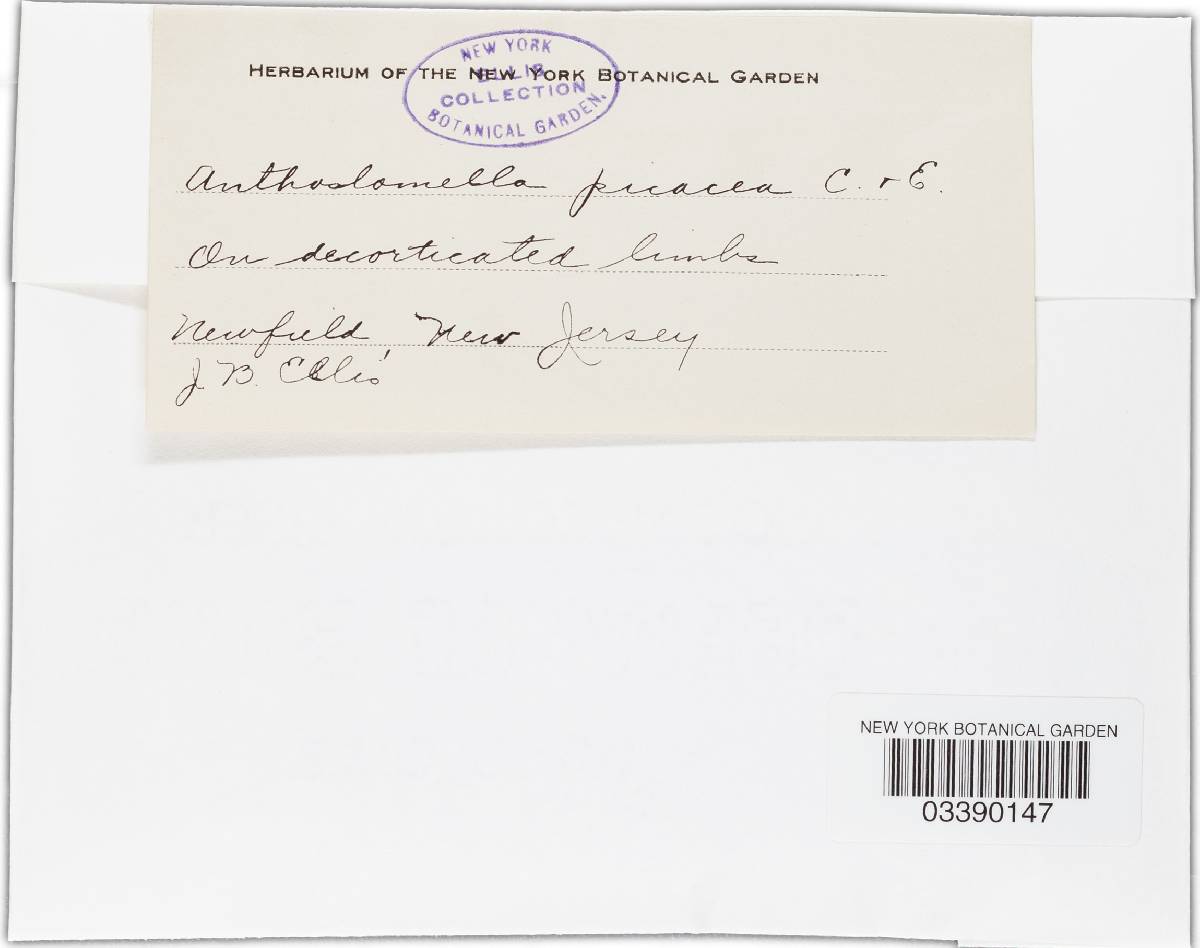 HERBARIUM OF THE NEW YORK BOTANICAL GARDEN
NEW YORK
ELLIS
COLLECTION
BOTANICAL GARDEN.
Anthostomella picacea C. & E.
On decorticated limbs
Newfield, New Jersey
J. B. Ellis
NEW YORK BOTANICAL GARDEN
03390147